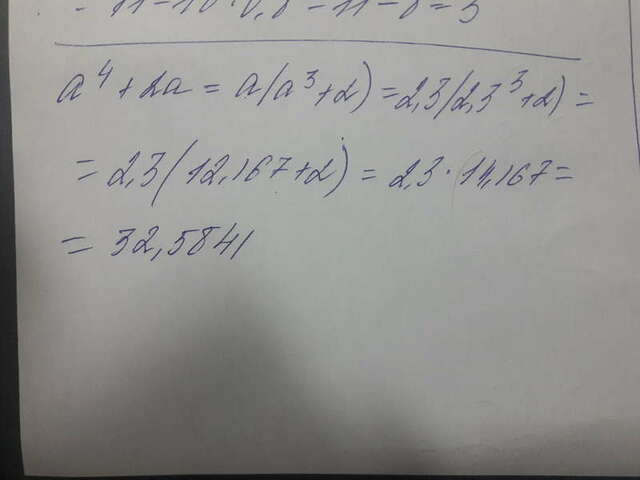 a⁴ + 2a = a(a³ + 2) = 2,3(2,3³ + 2) =
= 2,3(12,167 + 2) = 2,3 · 14,167 =
= 32,5841